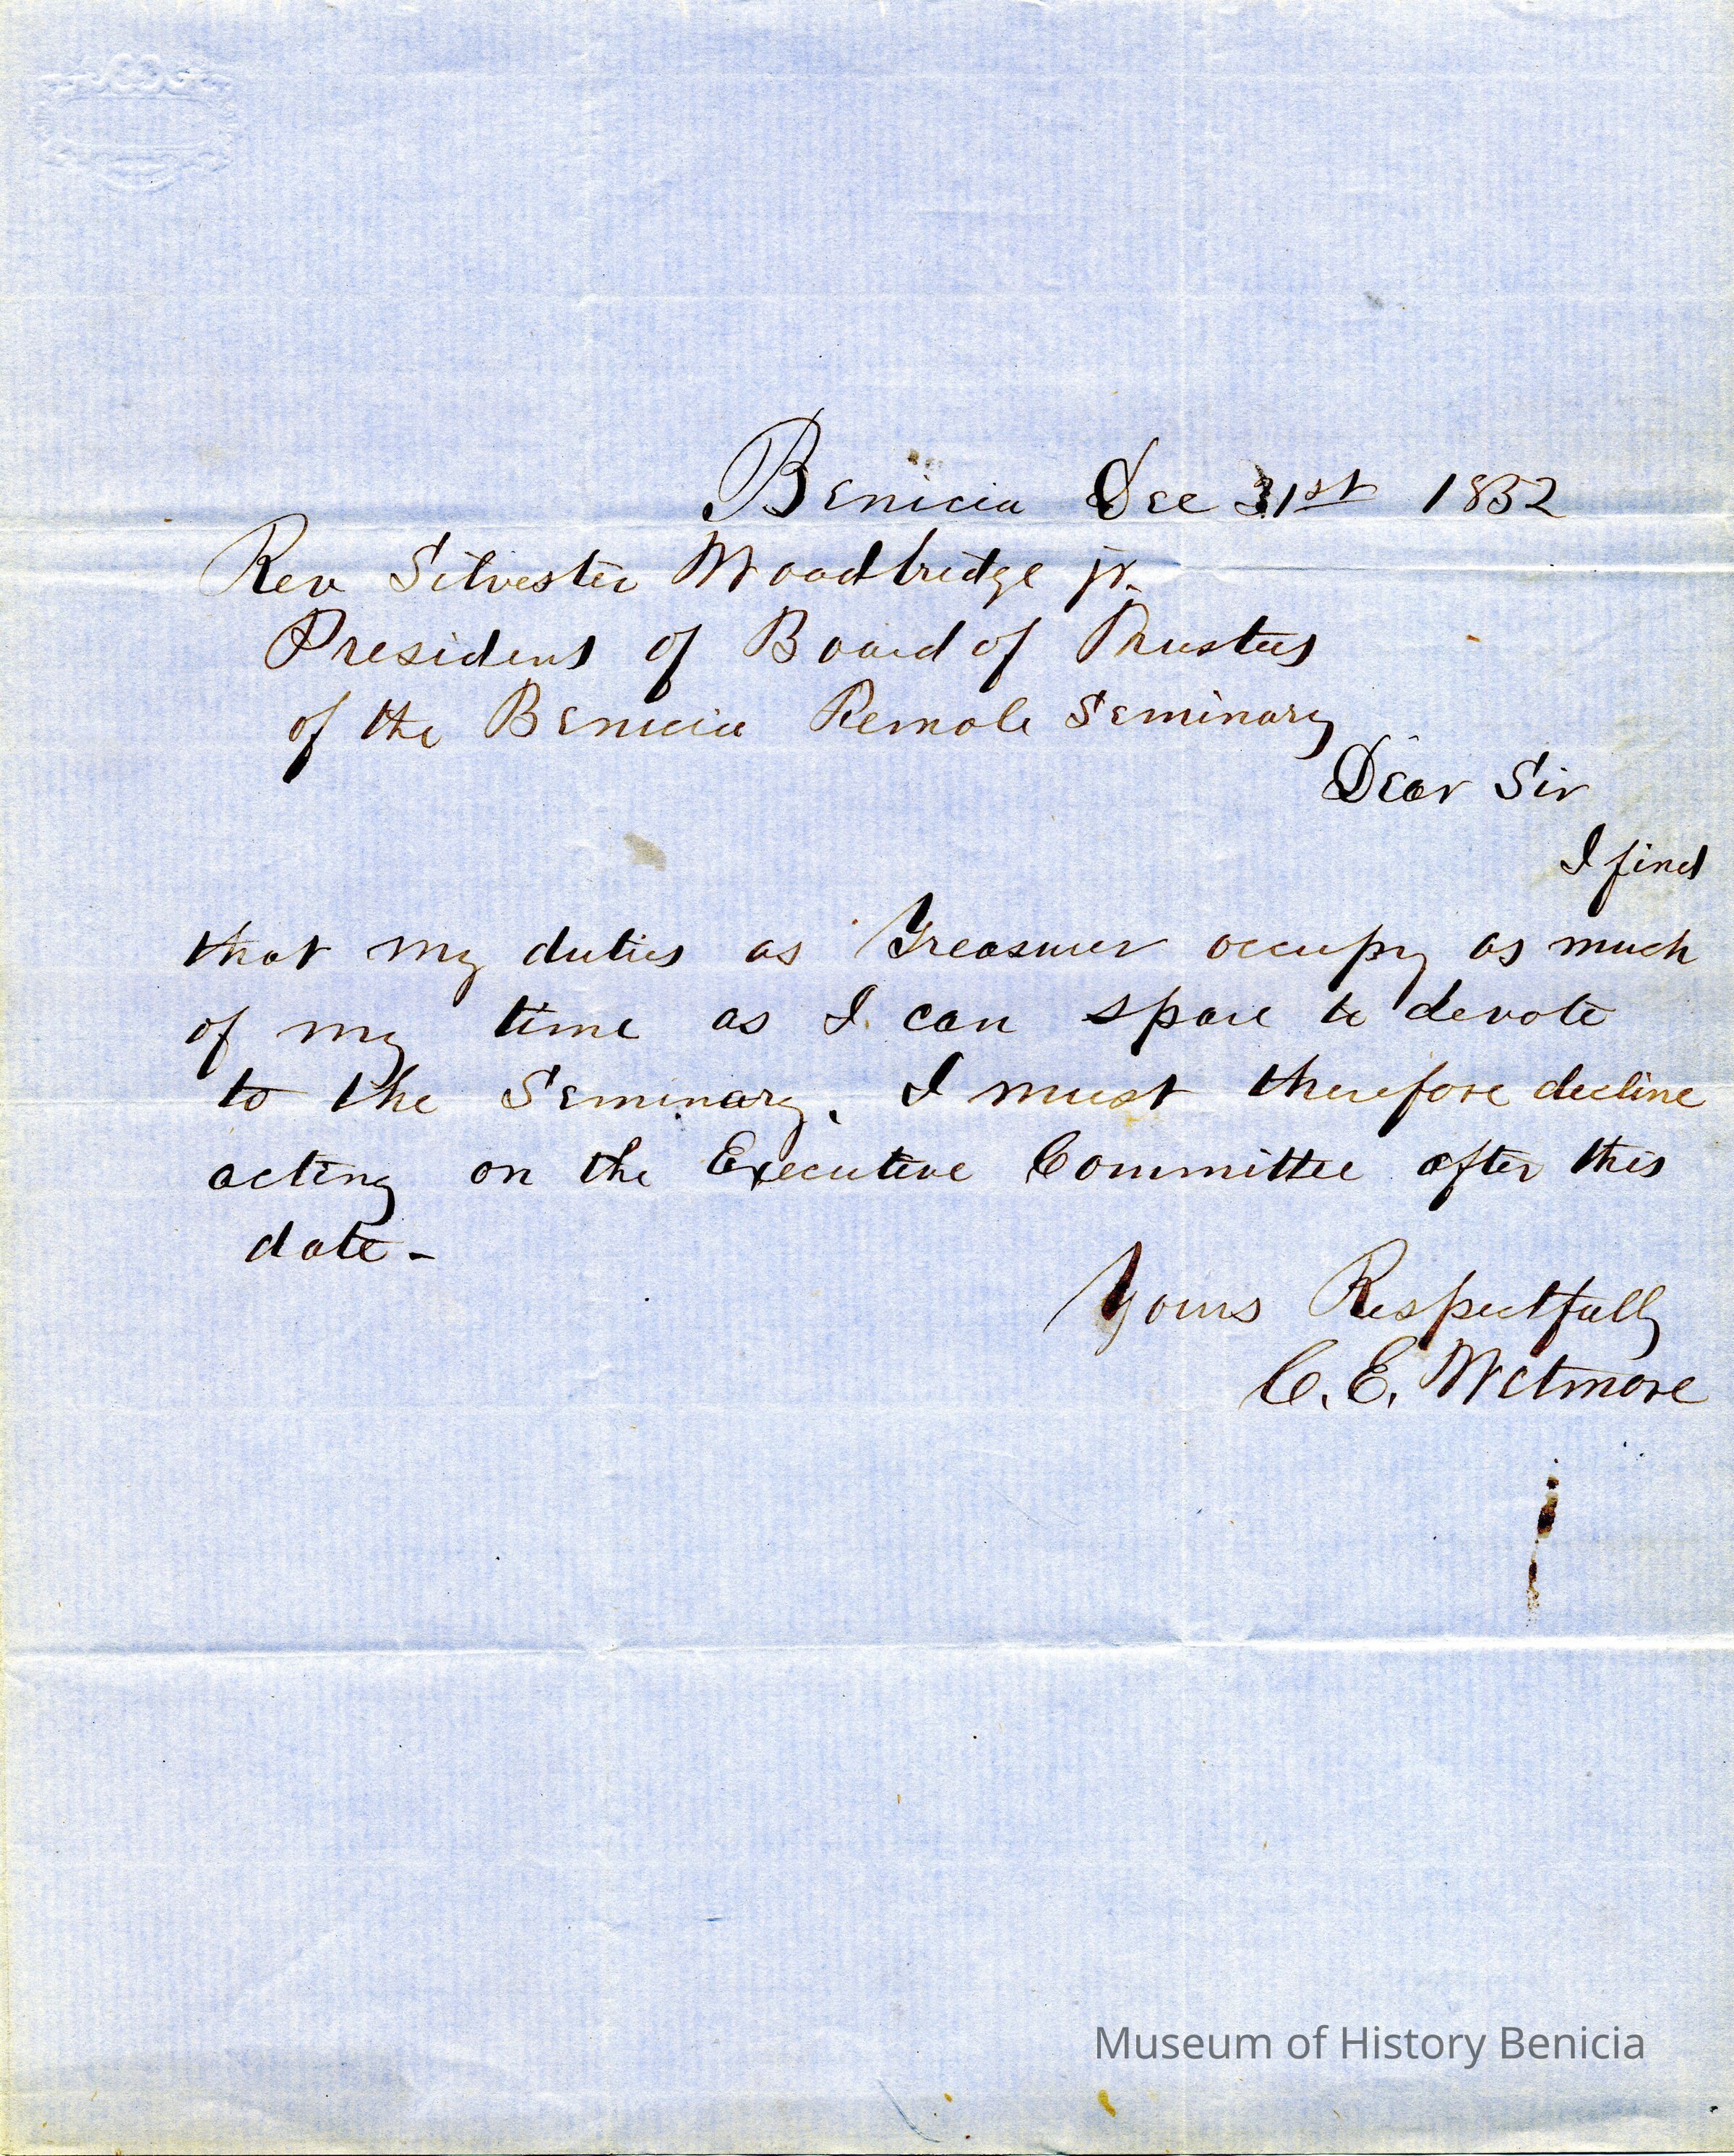 Benicia Dec 31st 1852
Rev Silvester Woodbridge jr.
President of Board of Trustees
of the Benicia Female Seminary
Dear Sir
I find
that my duties as Treasurer occupy as much
of my time as I can spare to devote
to the Seminary. I must therefore decline
acting on the Executive Committee after this
date -
Yours Respectfully
C. E. Wetmore
Museum of History Benicia